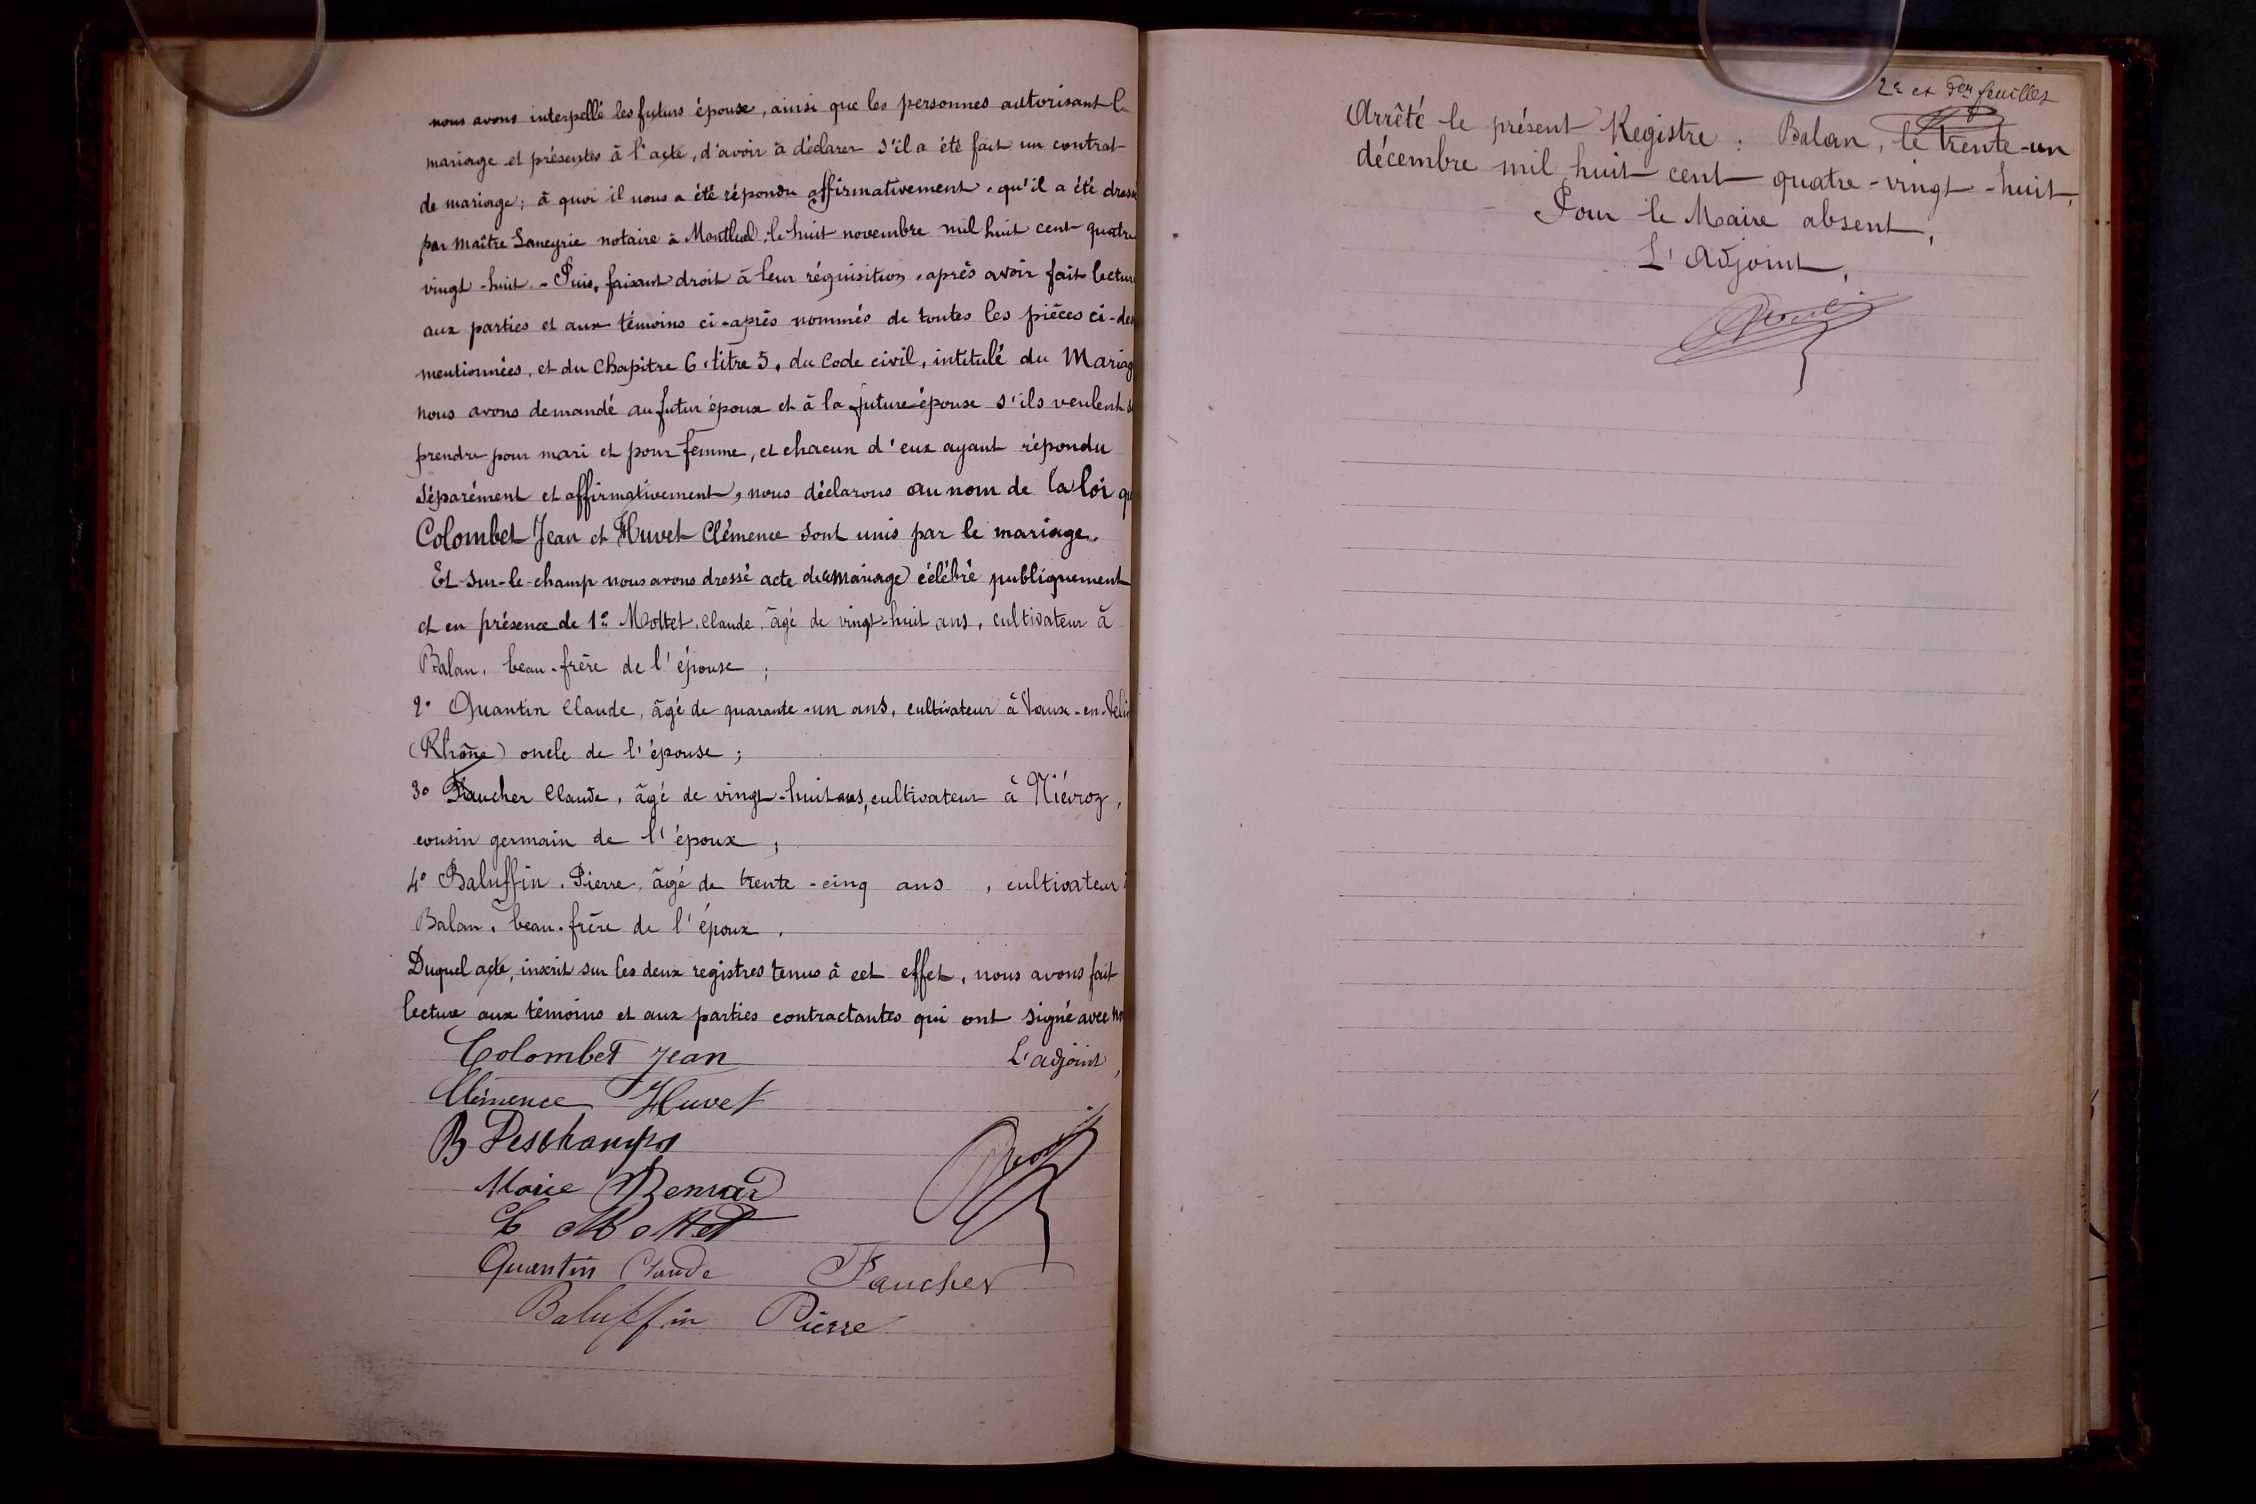 nous avons interpellé les futurs épouse, ainsi que les personnes autorisant l
mariage et présentes à l'acte, d'avoir à déclarer s'il a été fait un contrat
de mariage; à quoi il nous a été répondu affirmativement, qu'il a été dressé
par maître Laneyrie notaire à Montluel, le huit novembre mil huit cent quatre
vingt-huit. - Puis, faisant droit à leur réquisition, après avoir fait lecture
aux parties et aux témoins ci-après nommés de toutes les pièces ci-des
mentionnées, et du Chapitre 6, titre 5, du Code civil, intitulé du Mariag
nous avons demandé au futur époux et à la future épouse s'ils veulent s
prendre pour mari et pour femme, et chacun d'eux ayant répondu
séparément et affirmativement, nous déclarons au nom de la loi qu
Colombet Jean et Huvet Clémence sont unis par le mariage.
Et sur-le-champ nous avons dressé acte de mariage célébré publiquement
et en présence de 1º Mottet, Claude, âgé de vingt-huit ans, cultivateur à
Balan, beau-frère de l'épouse;
2º Quantin Claude, âgé de quarante-un ans, cultivateur à Vaux-en-Velin
(Rhône) oncle de l'épouse;
3º Faucher Claude, âgé de vingt-huit ans, cultivateur à Niévroz,
cousin germain de l'époux;
4º Baluffin, Pierre, âgé de trente-cinq ans, cultivateur à
Balan, beau-frère de l'époux.
Duquel acte, inscrit sur les deux registres tenus à cet effet, nous avons fait
lecture aux témoins et aux parties contractantes qui ont signé avec no
Colombet Jean
L'adjoint,
Clémence Huvet
B Deschamps
Marie
C Mottet
Quantin Claude
Faucher
Baluffin Pierre
2e et der feuillet
Arrêté le présent Registre. Balan, le trente-un
décembre mil huit cent quatre-vingt-huit,
Pour le Maire absent,
L'Adjoint,